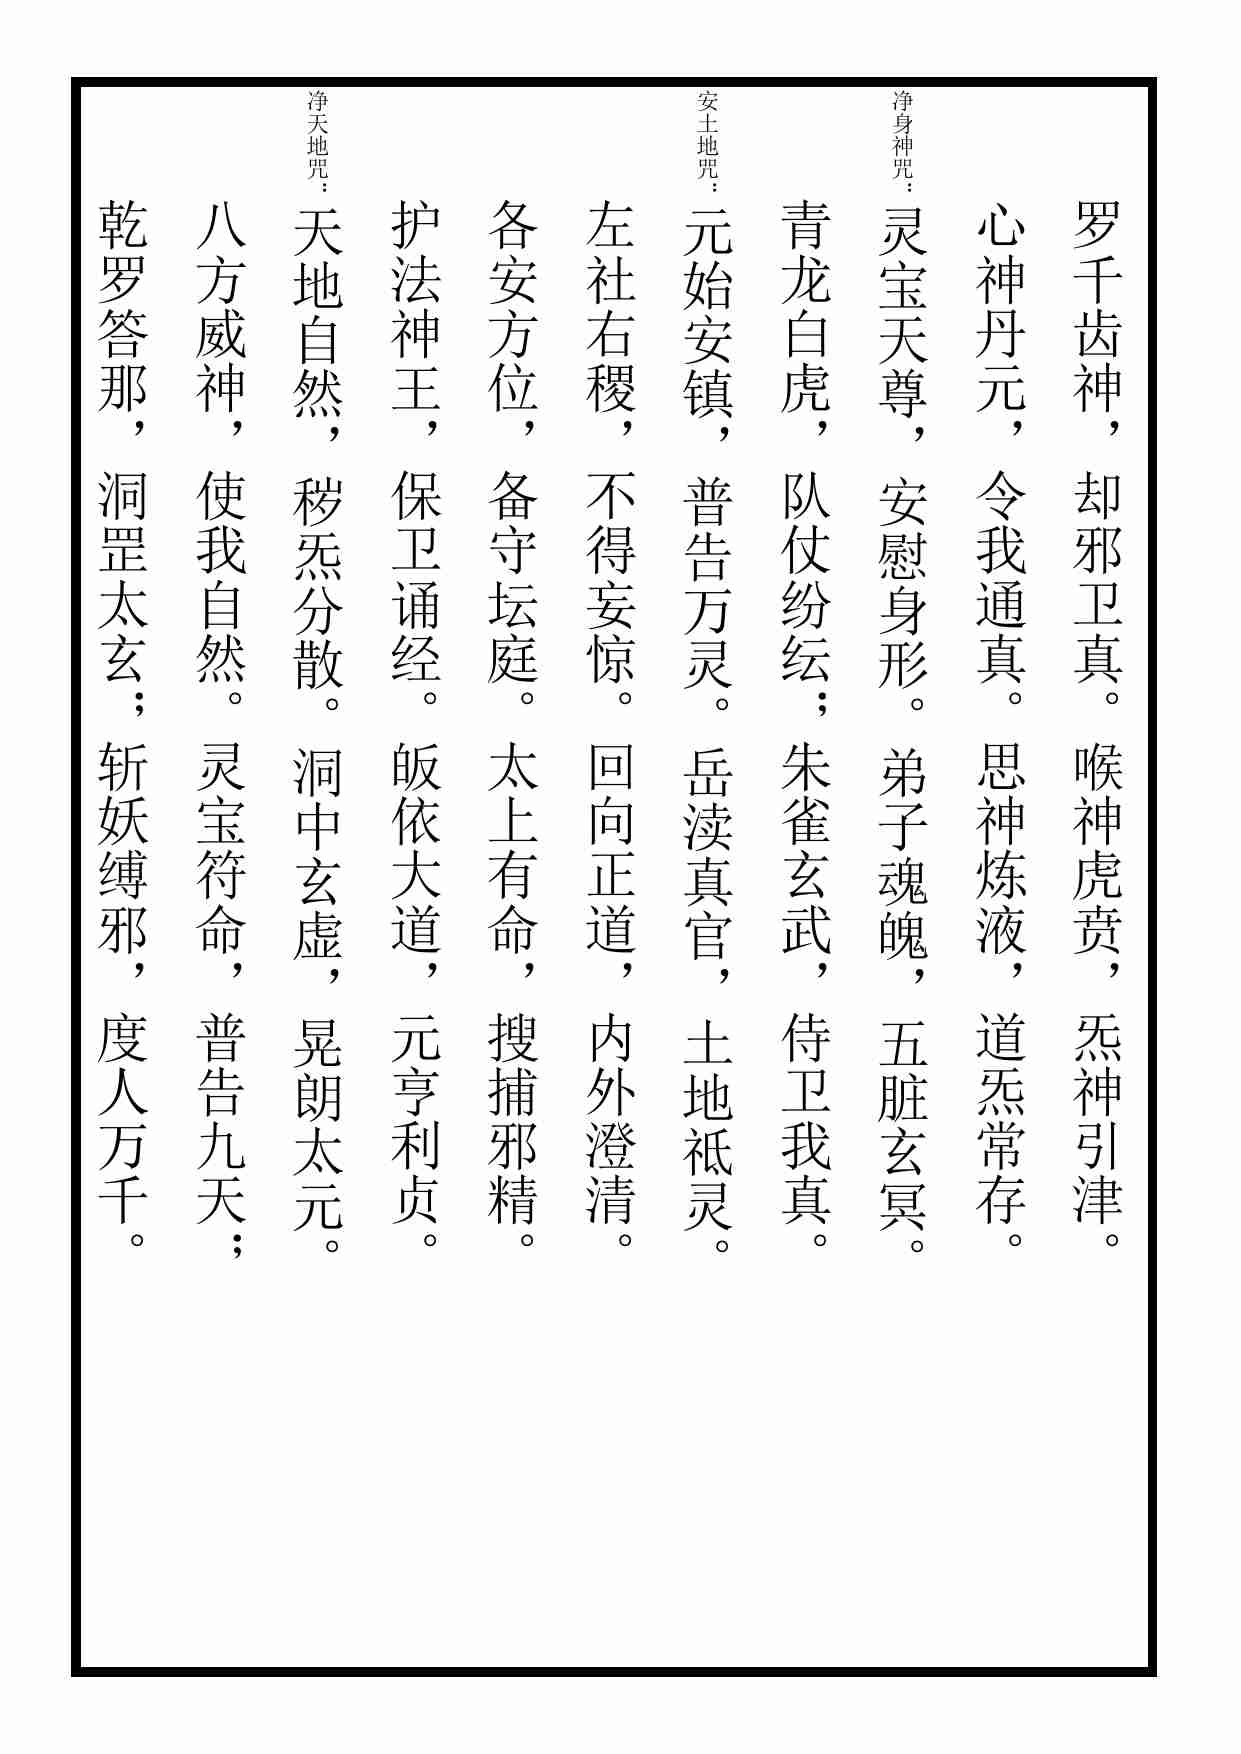 罗千齿神，却邪卫真。喉神虎贲，炁神引津。
心神丹元，令我通真。思神炼液，道炁常存。
净身神咒：灵宝天尊，安慰身形。弟子魂魄，五脏玄冥。
青龙白虎，队仗纷纭；朱雀玄武，侍卫我真。
安土地咒：元始安镇，普告万灵。岳渎真官，土地祇灵。
左社右稷，不得妄惊。回向正道，内外澄清。
各安方位，备守坛庭。太上有命，搜捕邪精。
护法神王，保卫诵经。皈依大道，元亨利贞。
净天地咒：天地自然，秽炁分散。洞中玄虚，晃朗太元。
八方威神，使我自然。灵宝符命，普告九天；
乾罗答那，洞罡太玄；斩妖缚邪，度人万千。